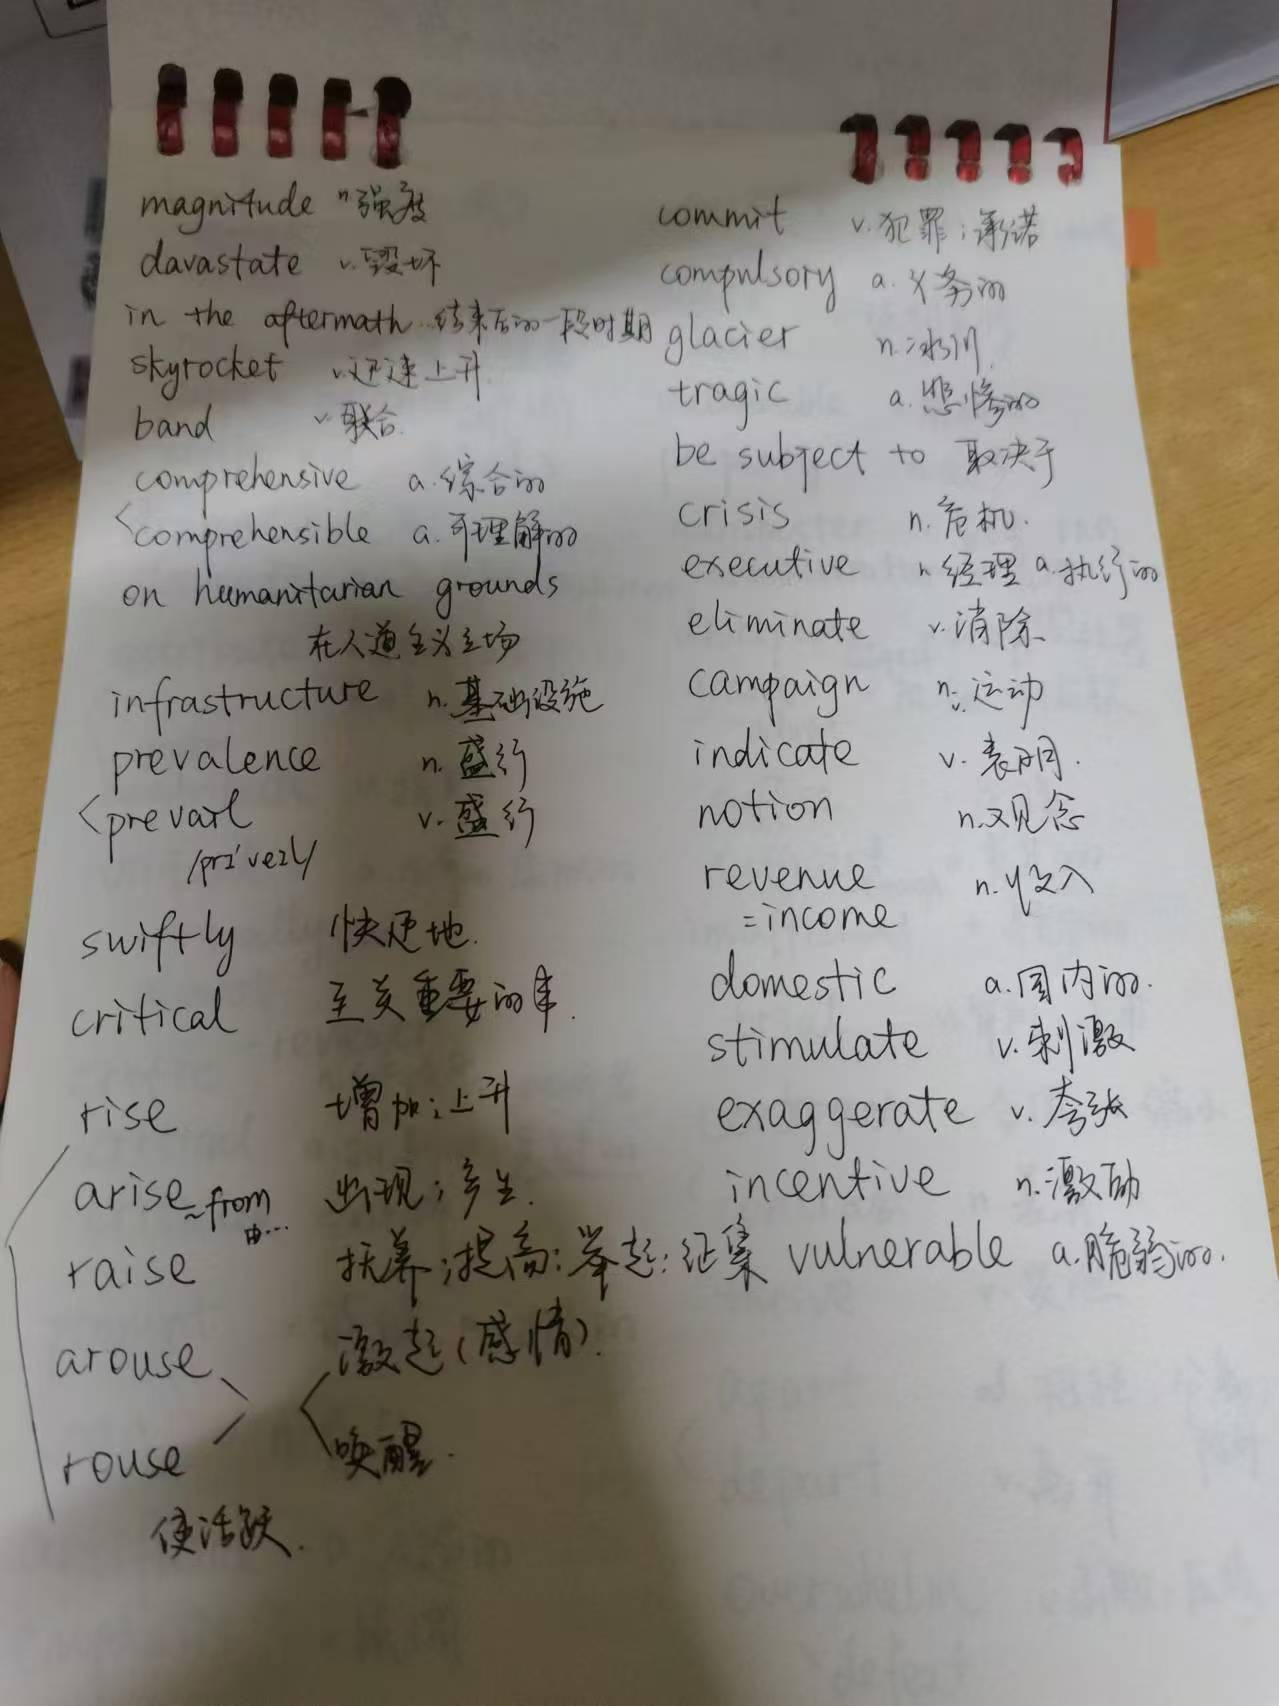 magnitude n强度
davastate v.毁坏
in the aftermath 结束后的一段时期
skyrocket v.迅速上升
band v.联合.
comprehensive a.综合的
comprehensible a.可理解的
on humanitarian grounds
在人道主义立场
infrastructure n.基础设施
prevalence n.盛行
prevail v.盛行
/prɪ'veɪl/
swiftly 快速地.
critical 至关重要的
rise 增加;上升
arise ~from 出现;产生.
由...
raise 抚养;提高;举起;征集
arouse 激起(感情).
rouse 唤醒.
使活跃.
commit v.犯罪;承诺
compulsory a.义务的
glacier n.冰川
tragic a.悲惨的
be subject to 取决于
crisis n.危机.
executive n经理 a.执行的
eliminate v.消除
campaign n.v.运动
indicate v.表明.
notion n.观念
revenue n.收入
=income
domestic a.国内的.
stimulate v.刺激
exaggerate v.夸张
incentive n.激励
vulnerable a.脆弱的.